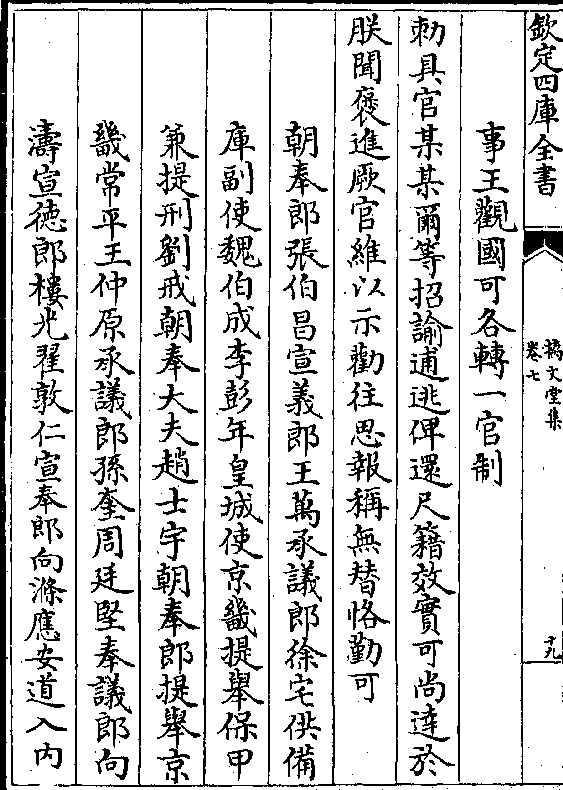 欽定四庫全書
摛文堂集
卷七
十九
事王觀國可各轉一官制
勅具官某某爾等招諭逋逃俾還尺籍效實可尚達於
朕聞褒進厥官維以示勸往思報稱無替恪勤可
朝奉郎張伯昌宣義郎王萬承議郎徐宅供備
庫副使魏伯成李彭年皇城使京畿提舉保甲
兼提刑劉戒朝奉大夫趙士宇朝奉郎提舉京
畿常平王仲原承議郎孫奎周廷堅奉議郎向
濤宣德郎樓光翟敦仁宣奉郎向滌應安道入内